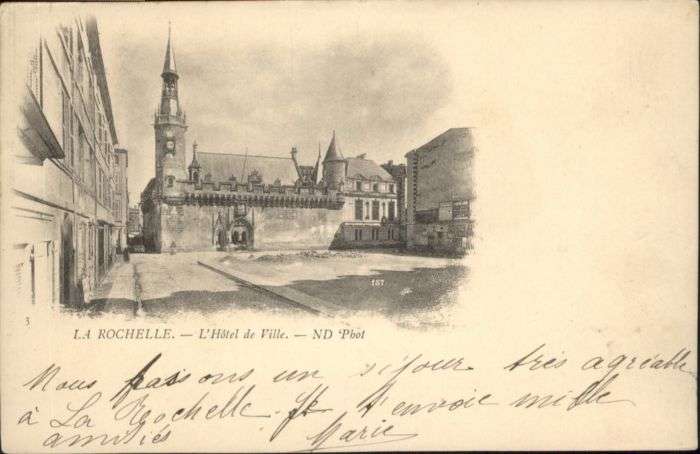 157
3
LA ROCHELLE. — L'Hôtel de Ville. — ND Phot
Nous passons un séjour très agréable
à La Rochelle. Je t'envoie mille
amitiés Marie